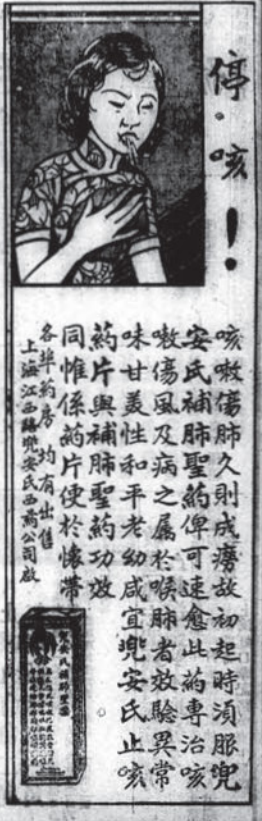 停咳！
咳嗽傷肺久則成癆故初起時須服兜
安氏補肺聖葯俾可速愈此葯專治咳
嗽傷風及病之屬於喉肺者效驗異常
味甘美性和平老幼咸宜兜安氏止咳
葯片與補肺聖葯功效
同惟係葯片便於懷帶
各埠葯房均有出售
上海江西路兜安氏西葯公司啟
兜安氏補肺聖葯